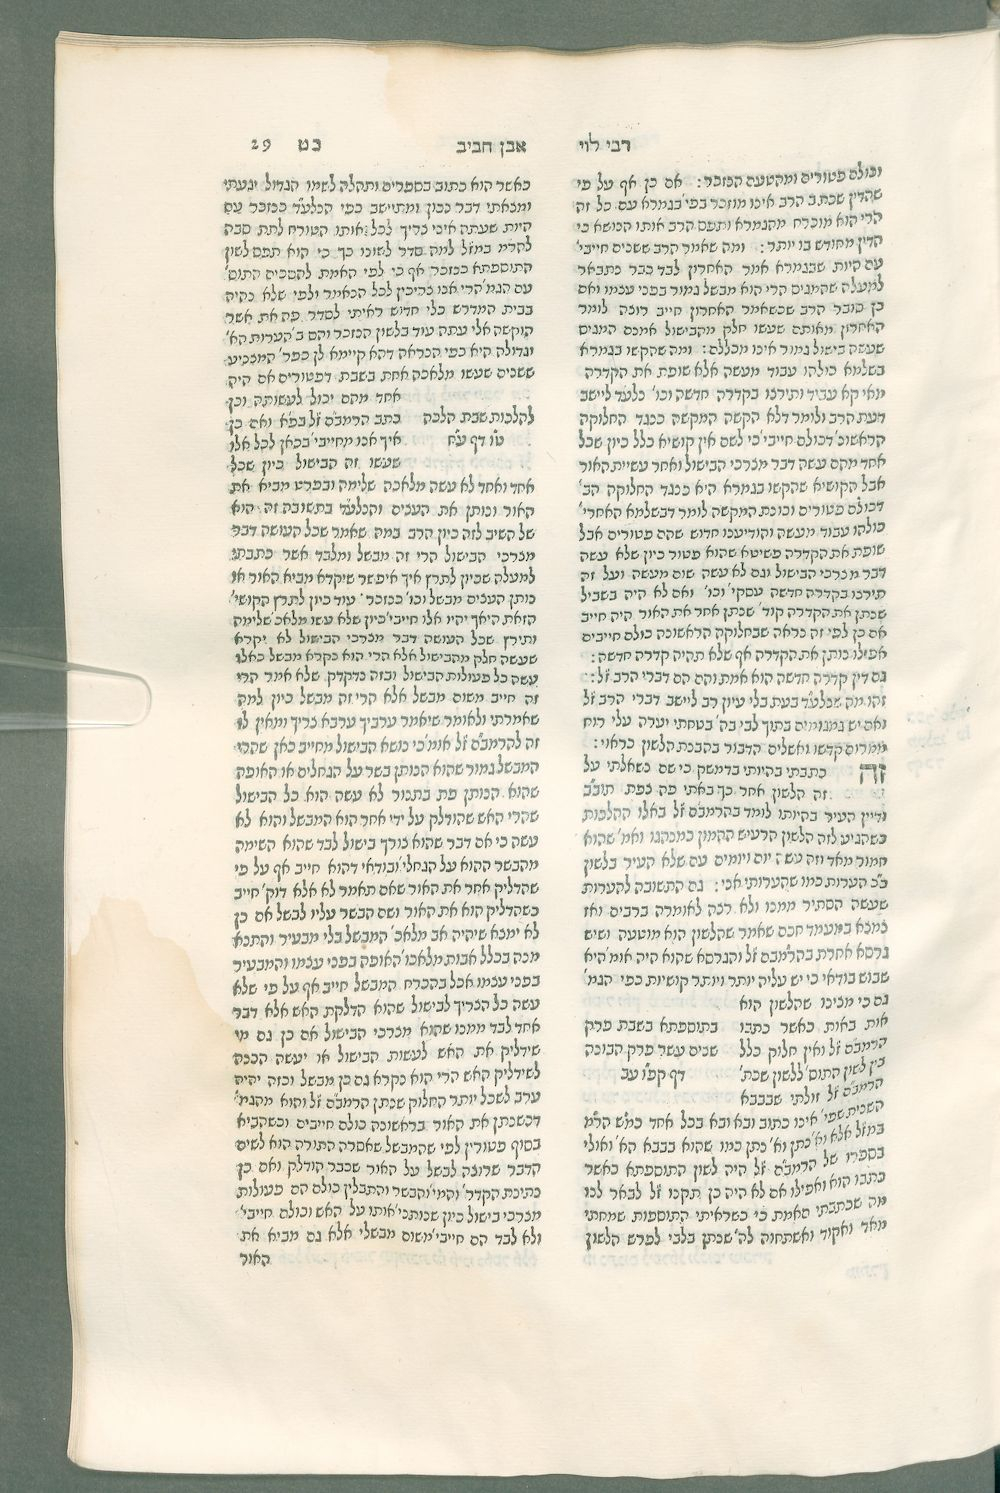 רבי לוי אבן חביב כט 29
וכולם פטורים ומהטעם הנזכר: אם כן אף על פי
שהדין שכתב הרב אינו מוזכר בפי׳ בגמרא עם כל זה
הרי הוא מוכרח מהגמרא ותפס הרב אותו הנושא כי
הדין מחודש בו יותר: ומה שאמר הרב ששנים חייבי׳
עם היות שבגמרא אמר האחרון לבד כבר נתבאר
למעלה שהמגיס הרי הוא מבשל גמור בפני עצמו ואם
כן סובר הרב שכשאמר האחרון חייב רוצה לומר
האחרון מאותם שעשו חלק מהבישול אמנם המגיס
שעשה בישול גמור אינו מכללם: ומה שהקשו בגמרא
בשלמא כולהו עבוד מעשה אלא שופת את הקדרה
מאי קא עביד ותירצו בקדרה חדשה וכו׳ נלע״ד ליישב
דעת הרב ולומר דלא הקשה המקשה כנגד החלוקה
הראשונ׳ דכולם חייבי׳ כי לשם אין קושיא כלל כיון שכל
אחד מהם עשה דבר מצרכי הבישול ואחר עשיית האור
אבל הקושיא שהקשו בגמרא היא כנגד החלוקה הב׳
דכולם פטורים וכונת המקשה לומר דבשלמא האחרי׳
כולהו עבוד מעשה והודיענו חדוש שהם פטורים אבל
שופת את הקדרה פשיטא שהוא פטור כיון שלא עשה
דבר מצרכי הבישול וגם לא עשה שום מעשה ועל זה
תירצו בקדרה חדשה עסקי׳ וכו׳ ואם לא היה בשביל
שנתן את הקדרה קוד׳ שנתן אחר את האור היה חייב
אם כן לפי זה נראה שבחלוקה הראשונה כולם חייבים
אפילו נותן את הקדרה אף שלא תהיה קדרה חדשה:
גם דין קדרה חדשה הוא אמת והם הם דברי הרב ז״ל:
זהו מה שנלע״ד בעת בלי עיון רב ליישב דברי הרב ז״ל
ואם יש גמגומים בתוך לבי בה׳ בטחתי יערה עלי רוח
ממרום קדשו ואשלים הדבור בהבנת הלשון כראוי:
זה כתבתי בהיותי בדמשק כי שם נשאלתי על
זה הלשון אחר כך באתי פה צפת תוב״ב
ודיין העיר בהיותו לומד בהרמב״ם ז״ל באלו ההלכות
כשהגיע לזה הלשון הרעיש ההמון כמנהגו ואמ׳ שהוא
חמור מאד וזה עשה יום ויומים עם שלא העיר בלשון
כ״כ הערות כמו שהערותי אני: גם התשובה להערות
שעשה הסתיר ממנו ולא רצה לאומרה ברבים ואז
נמצא במעמד חכם שאמר שהלשון הוא מוטעה ושיש
גרסא אחרת בהרמב״ם ז״ל והגרסא שהוא היה אומ׳ היא
שבוש בודאי כי יש עליה יותר ויותר קושיות כפי הגמ׳
גם כי מצינו שהלשון הוא
אות באות כאשר כתבו בתוספתא בשבת פרק
הרמב״ם ז״ל ואין חלוק כלל שנים עשר פרק הבונה
בין לשון התוס׳ ללשון שכת׳ דף קפ״ו עב
הרמב״ם ז״ל זולתי שבבבא
השנית שפי׳ אינו כתוב ובא ובא בכל אחד כמ״ש הר״מ
במז״ל אלא וא׳ נתן וא׳ נתן כמו שהוא בבבא הא׳ ואולי
בספרו של הרמב״ם ז״ל היה לשון התוספתא כאשר
כתבו הוא ואפילו אם לא היה כן תקנו ז״ל לבאר לנו
מה שכתבתי האמת כי כשראיתי התוספות שמחתי
מאד ואקוד ואשתחוה לה׳ שכתן בלבי לפרש הלשון
כאשר הוא כתוב בספרים ותהלה לשמו הגדול יגעתי
ומצאתי דבר נכון ומתיישב כפי הנלע״ד כנזכר עם
היות שעתה איני צריך לכל אותו הטורח לתת סבה
להר״מ במז״ל למה סדר לשונו כך כי הוא תפס לשון
התוספתא כנזכר אף כי לפי האמת להסכים התוס׳
עם הגמ׳ הרי אנו צריכין לכל הנאמר ולפי שלא נהיה
בבית המדרש בלי חדוש ראיתי לסדר פה את אשר
הוקשה אלי עתה עוד בלשון הנזכר והם ב׳ הערות הא׳
וגדולה היא כפי הנראה דהא קיימא לן כפר׳ המצניע
ששנים שעשו מלאכה אחת בשבת דפטורים אם היה
אחד מהם יכול לעשותה וכן
להלכות שבת הלכה כתב הרמב״ם ז״ל בפ״א ואם כן
ט״ו דף ע״ח איך אנו מחייבי׳ בכאן לכל אלו
שעשו זה הבישול כיון שכל
אחד ואחד לא עשה מלאכה שלימה ובפרט מביא את
האור ונותן את העצים והנלע״ד בתשובה זה הוא
של השיב לזה כיון הרב במה שאמר שכל העושה דבר
מצרכי הבישול הרי זה מבשל ומלבד אשר כתבתי
למעלה שכיון לתרץ איך איפשר שיקרא מביא האור או
נותן העצים מבשל וכו׳ כנזכר עוד כיון לתרץ הקושי׳
הזאת היאך יהיו אלו חייבי׳ כיון שלא עשו מלאכ׳ שלימה
ותירץ שכל העושה דבר מצרכי הבישול לא יקרא
שעשה חלק מהבישול אלא הרי הוא נקרא מבשל כאלו
עשה כל פעולות הבישול ובזה נדקדק שלא אמר הרי
זה חייב משום מבשל אלא הרי זה מבשל כיון למה
שאמרתי ולאומר שיאמר ערביך ערבא צריך ומאין לו
זה להרמב״ם ז״ל אומ׳ כי נושא הבישול מחייב כאן שהרי
המבשל גמור שהוא הנותן בשר על הגחלים או האופה
שהוא הנותן פת בתנור לא עשה הוא כל הבישול
שהרי האש שהודלק על ידי אחר הוא המבשל והוא לא
עשה כי אם דבר שהוא צורך בישול לבד שהוא השימה
מהבשר ההוא על הגחלי׳ ובודאי דהוא חייב אף על פי
שהדליק אחר את האור שאם תאמר לא אלא דוק׳ חייב
כשהדליק הוא את האור ושם הבשר עליו לבשל אם כן
לא ימצא שיהיה אב מלאכ׳ המבשל בלי מבעיר והתנא
מנה בכלל אבות מלאכו׳ האופה בפני עצמו והמבעיר
בפני עצמו אכל בהכרח המבשל חייב אף על פי שלא
עשה כל הצריך לבישול שהוא הדלקת האש אלא דבר
אחד לבד ממנו שהוא מצרכי הבישול אם כן גם מי
שידליק את האש לעשות הבישול או יעשה הכנה
לשידליק האש הרי הוא נקרא גם כן מבשל ובזה יהיה
ערב לשכל יותר החלוק שנתן הרמב״ם ז״ל והוא מהגמ׳
דכשנתן את האור בראשונה כולם חייבים וכשהביא
בסוף פטורין לפי שהמבשל שאסרה התורה הוא לשים
הדבר שרוצה לבשל על האור שכבר הודלק ואם כן
נתינת הקדר׳ והמי׳ והבשר והתבלין כולם הם פעולות
מצרכי בישול כיון שנותני׳ אותו על האש וכולם חייבי׳
ולא לבד הם חייבי׳ משום מבשלי אלא גם מביא את
האור